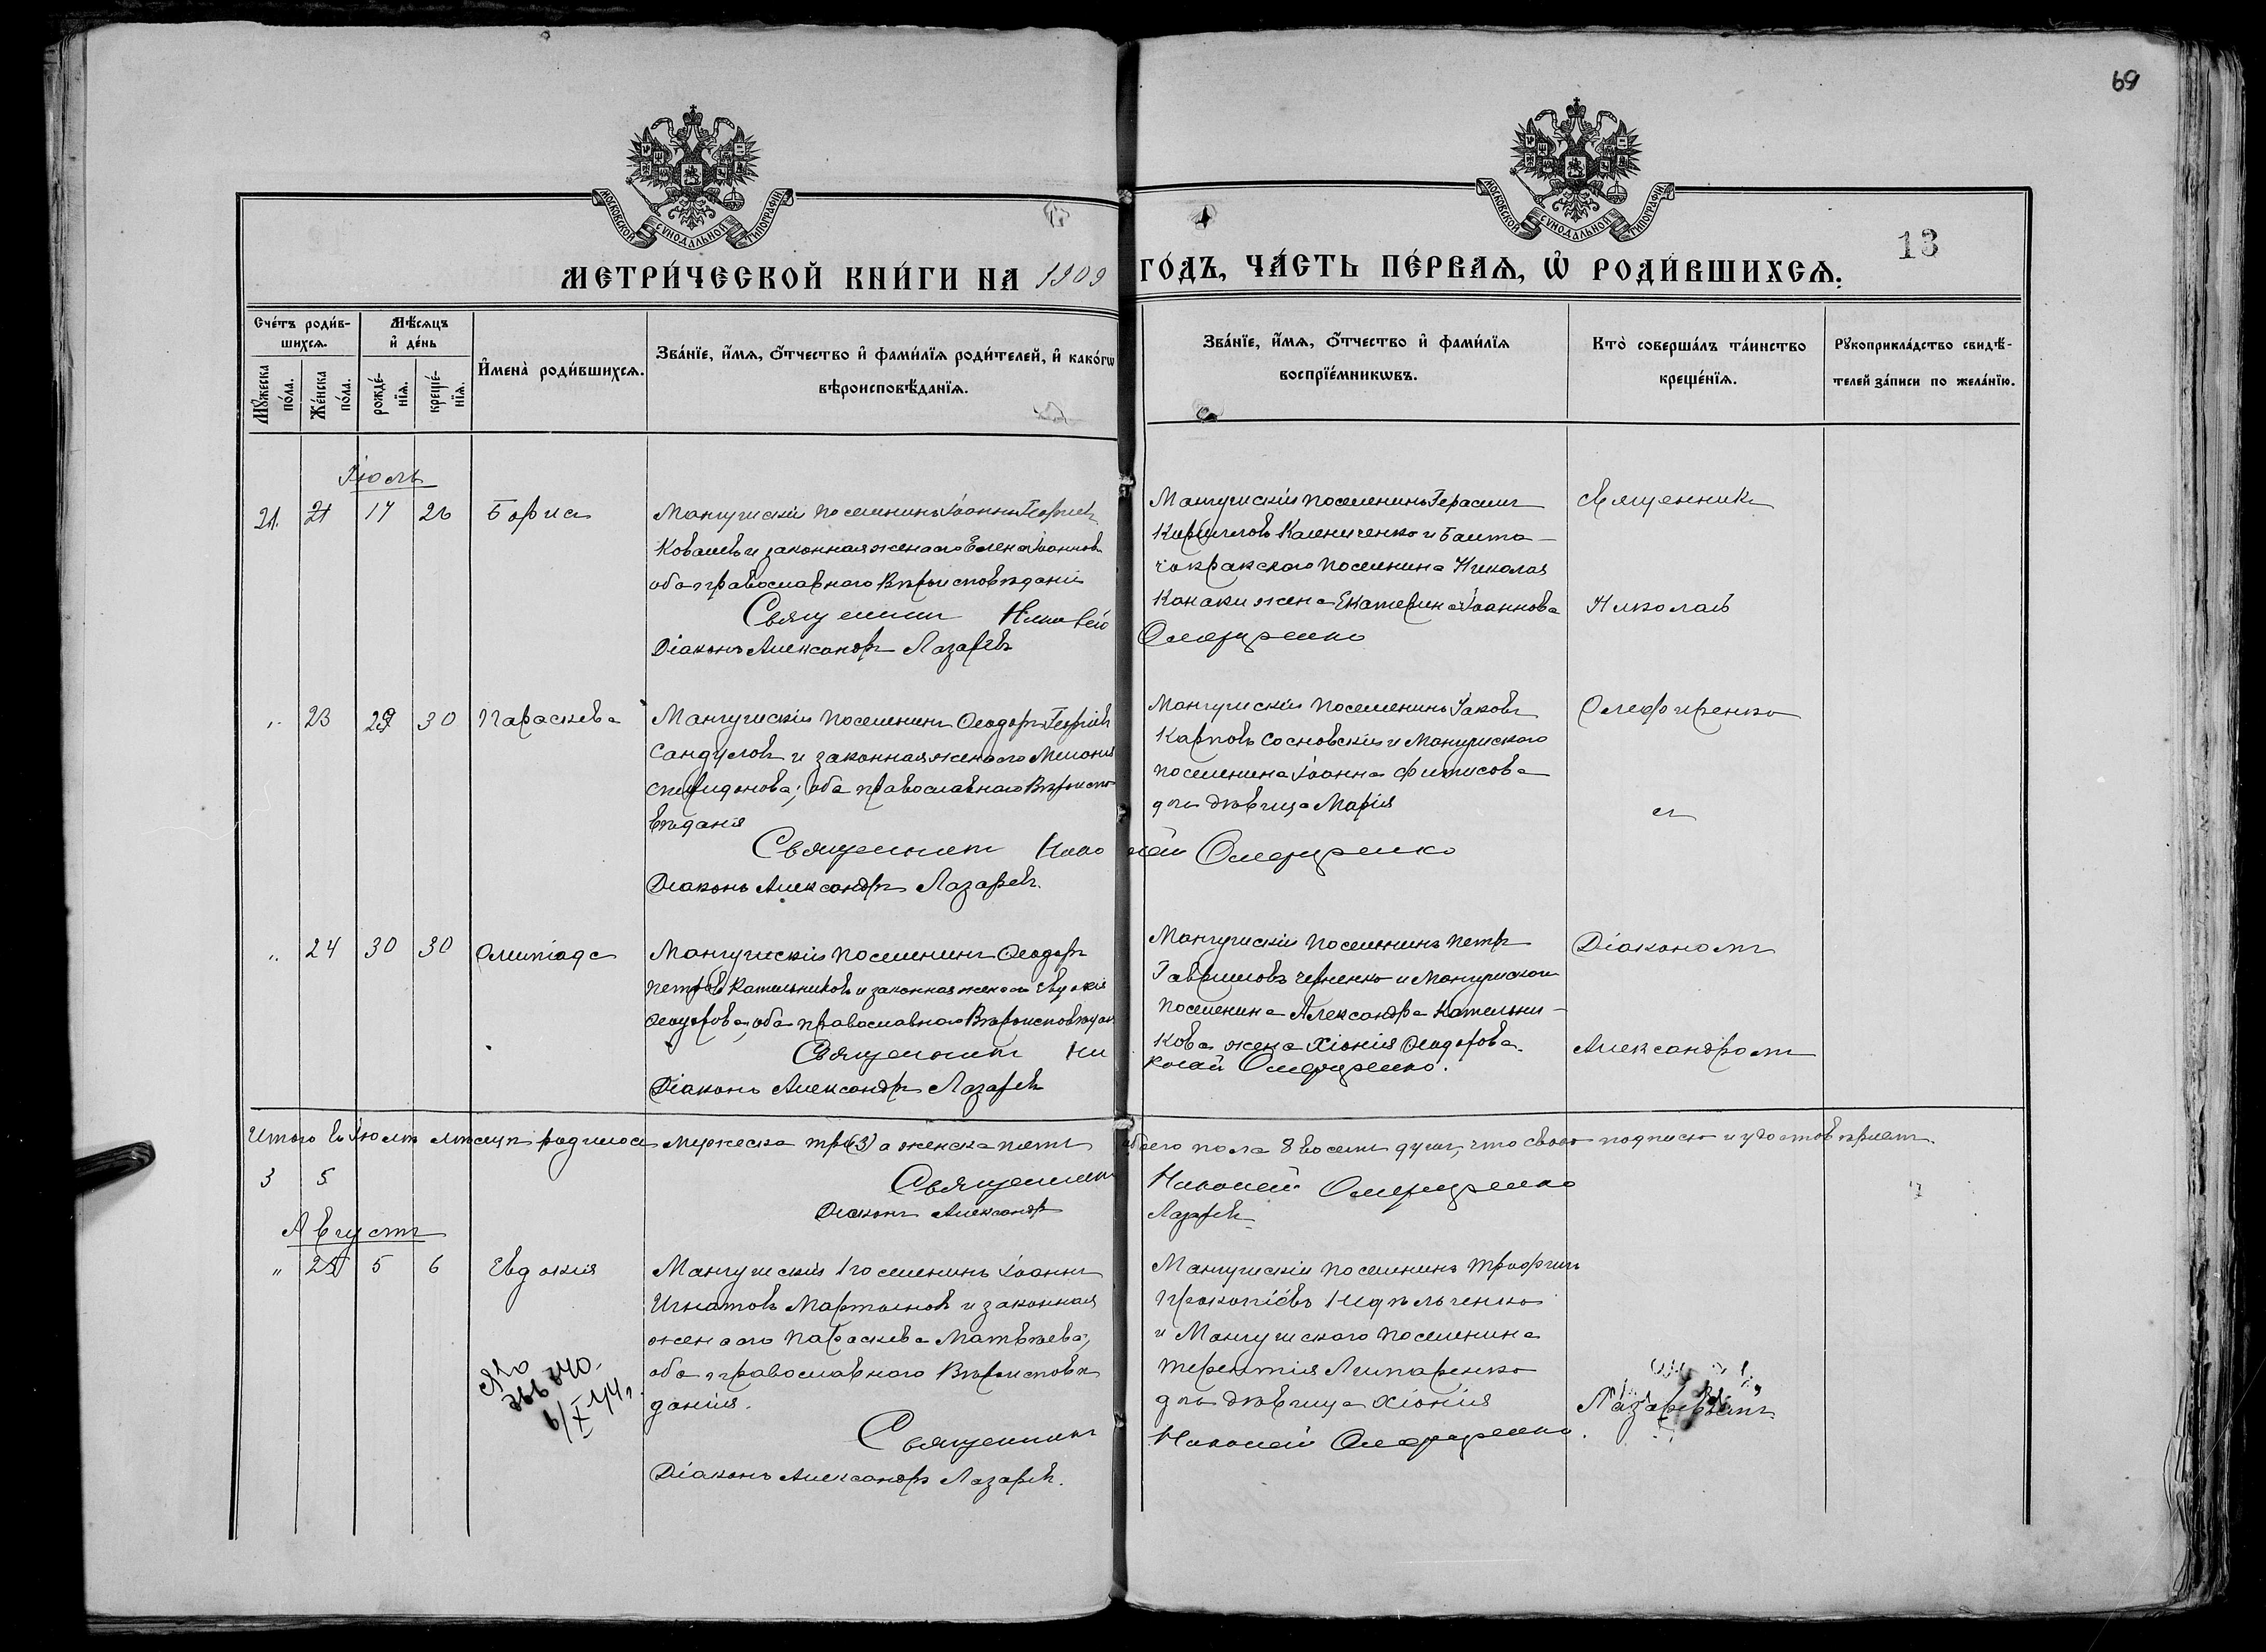 69
13
МОСКОВСКОЙ СѴНОДАЛЬНОЙ ТИПОГРАФИИ
МОСКОВСКОЙ СѴНОДАЛЬНОЙ ТИПОГРАФИИ
МЕТРИ́ЧЕСКОЙ КНИ́ГИ НА 1909 ГО́ДЪ, ЧА́СТЬ ПЕ́РВАѦ, Ѡ҆ РОДИ́ВШИХСѦ.
Сче́тъ роди́в-
шихсѧ.
Мꙋ́жеска по́ла.
Же́нска по́ла.
Мѣ́сѧцъ
и҆ де́нь
рожде́-
нїѧ.
креще́-
нїѧ.
И҆мена̀ роди́вшихсѧ.
Зва́нїе, и҆́мѧ, ѻ҆́тчество и҆ фами́лїѧ роди́телей, и҆ како́гѡ
вѣроисповѣ́данїѧ.
Зва́нїе, и҆́мѧ, ѻ҆́тчество и҆ фами́лїѧ
воспрїе́мникѡвъ.
Кто̀ соверша́лъ та́инство
креще́нїѧ.
Рꙋкоприкла́дство свидѣ́-
телей за́писи по жела́нїю.
Іюль
21. 21 17 26 Борис
Мангушскій поселенинъ Іоаннъ Георгіев
Ковалевъ и законная жена его Елена Іоаннов
оба православнаго Вѣроисповѣданія
Священник Николай
Діаконъ Александръ Лазаревъ
Мангушскій поселенинъ Герасим
Кирилловъ Калениченко и Башта-
чокракского поселенина Николая
Канаки жена Екатерина Іоаннова
Олефиренко
Священник
Николай
,, 23 29 30 Параскева
Мангушскій поселенинъ Ѳеодоръ Георгіев
Сандулов и законная жена его Мелания
Спиридонова; оба православнаго Вѣроиспо
вѣданія
Священник Нико
Діаконъ Александръ Лазаревъ.
Мангушскій поселенинъ Іаковъ
Карповъ Сосновскій и Мангушского
поселенина Іоанна Фитисова
дочь дѣвица Марія
лай Олефиренко
Олефиренко
с
,, 24 30 30 Олимпіада
Мангушскій поселенинъ Ѳеодоръ
Петровъ Кательников и законная жена его Евдокія
Ѳеодорова, оба православнаго Вѣроисповѣдан
Священник Ни
Діаконъ Александръ Лазаревъ
Мангушскій поселенинъ Петръ
Гавриловъ Черненко и Мангушского
поселенина Александра Кательни-
кова жена Хіонія Ѳеодорова.
колай Олефиренко.
Діакономъ
Александромъ
Итого въ Іюлѣ мѣсяцѣ родилося мужеска три (3) а женска пять обоего пола 8 восемь душ, что своею подписью и удостовѣряем.
3 5
Священник Николай Олефиренко
Діаконъ Александръ Лазаревъ
Августъ
" 25 5 6 Евдокія
Мангушскій поселенинъ Іоаннъ
Игнатовъ Мартынов и законная
жена его Параскева Матѳеева;
оба православнаго Вѣроисповѣ
данія.
Священник
Діаконъ Александръ Лазаревъ.
Мангушскій поселенинъ Трофимъ
Прокопіевъ Недѣльченко
и Мангушского поселенина
Терентія Липаренко
дочь дѣвица Хіонія
Николай Олефиренко.
Лазаревымъ